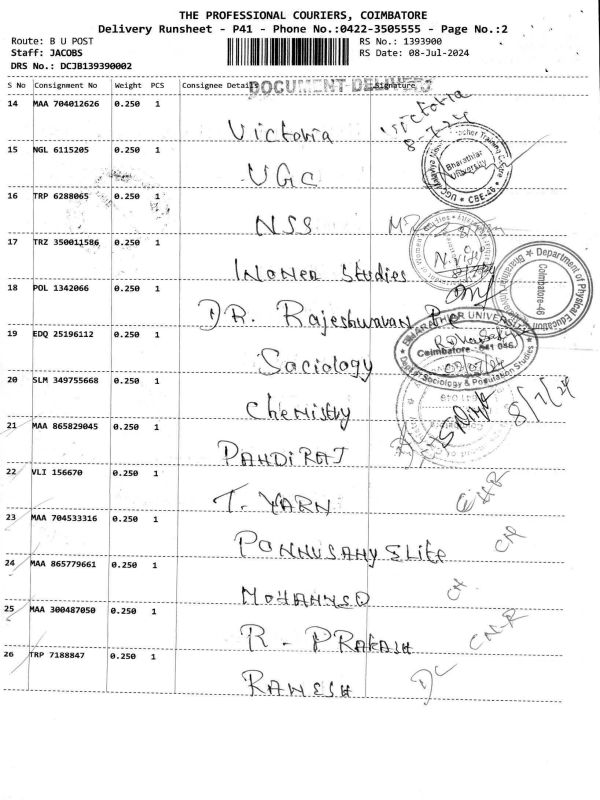 THE PROFESSIONAL COURIERS, COIMBATORE
Delivery Runsheet - P41 - Phone No.:0422-3505555 - Page No.:2
Route: B U POST
Staff: JACOBS
DRS No.: DCJB139390002
RS No.: 1393900
RS Date: 08-Jul-2024
S No Consignment No Weight PCS Consignee Details Signature
14 MAA 704012626 0.250 1 Victoria Victoria 8-7-24
15 NGL 6115205 0.250 1 UGC
Bharathiar University
CBE-46
16 TRP 6288065 0.250 1 NSS
17 TRZ 350011586 0.250 1 Women Studies
18 POL 1342066 0.250 1 DR. Rajeshwaran P.e
Department of Physical Education
Coimbatore-46
19 EDQ 25196112 0.250 1 Sociology
BHARATHIAR UNIVERSITY
Coimbatore - 641 046.
Dept of Sociology & Population Studies
20 SLM 349755668 0.250 1 Chemistry 8/7/24
21 MAA 865829045 0.250 1 PANDIRAJ
22 VLI 156670 0.250 1 T. YARN
23 MAA 704533316 0.250 1 PONNUSAMY ELite
24 MAA 865779661 0.250 1 MOHAMMED
25 MAA 300487050 0.250 1 R - PRAKASH
26 TRP 7188847 0.250 1 RAMESH DC